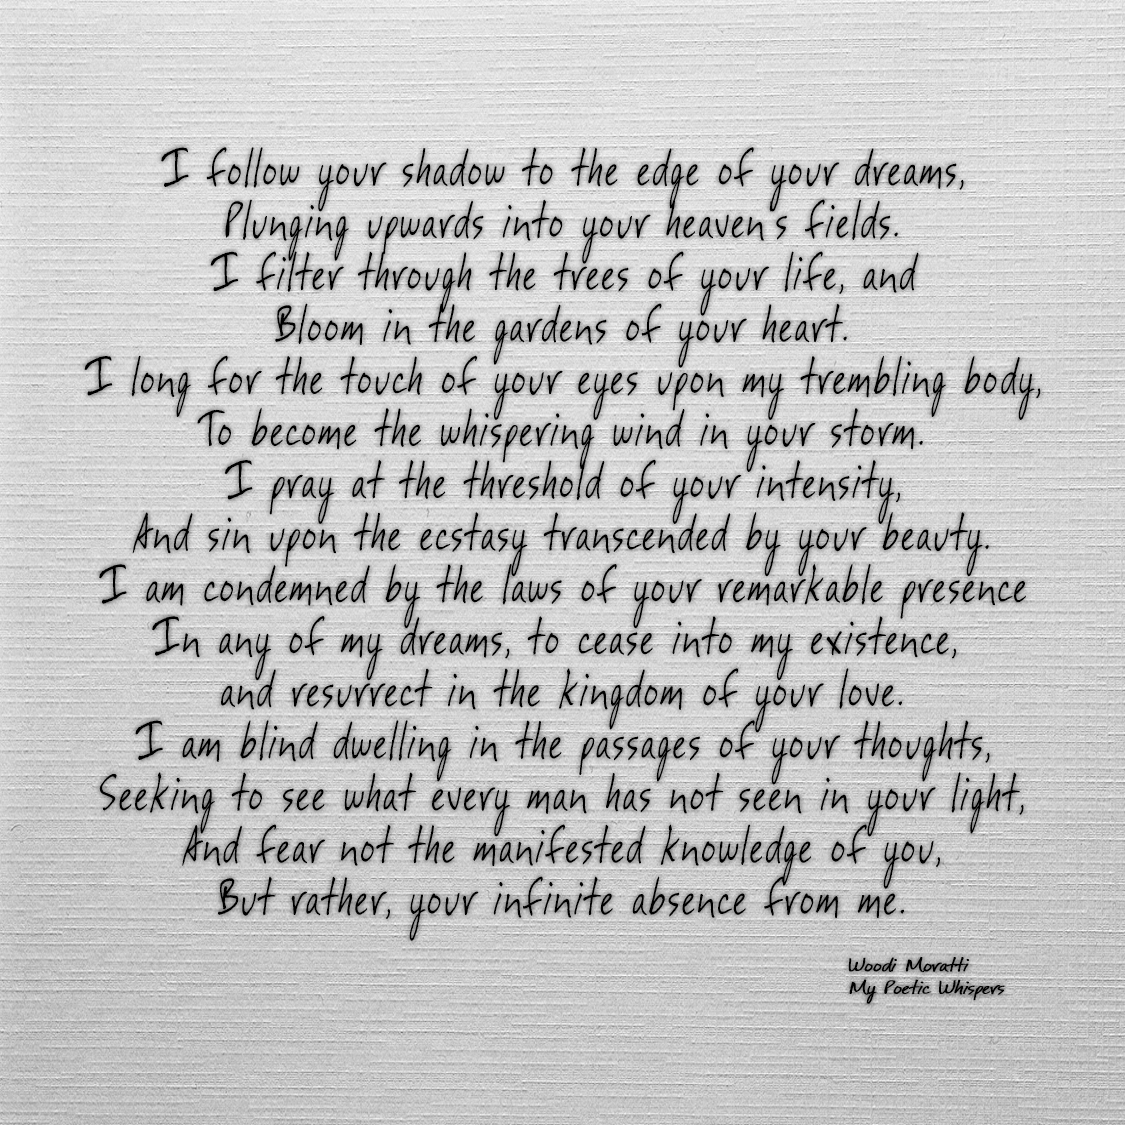 I follow your shadow to the edge of your dreams,
Plunging upwards into your heaven's fields.
I filter through the trees of your life, and
Bloom in the gardens of your heart.
I long for the touch of your eyes upon my trembling body,
To become the whispering wind in your storm.
I pray at the threshold of your intensity,
And sin upon the ecstasy transcended by your beauty.
I am condemned by the laws of your remarkable presence
In any of my dreams, to cease into my existence,
and resurrect in the kingdom of your love.
I am blind dwelling in the passages of your thoughts,
Seeking to see what every man has not seen in your light,
And fear not the manifested knowledge of you,
But rather, your infinite absence from me.
Woodi Moratti
My Poetic Whispers